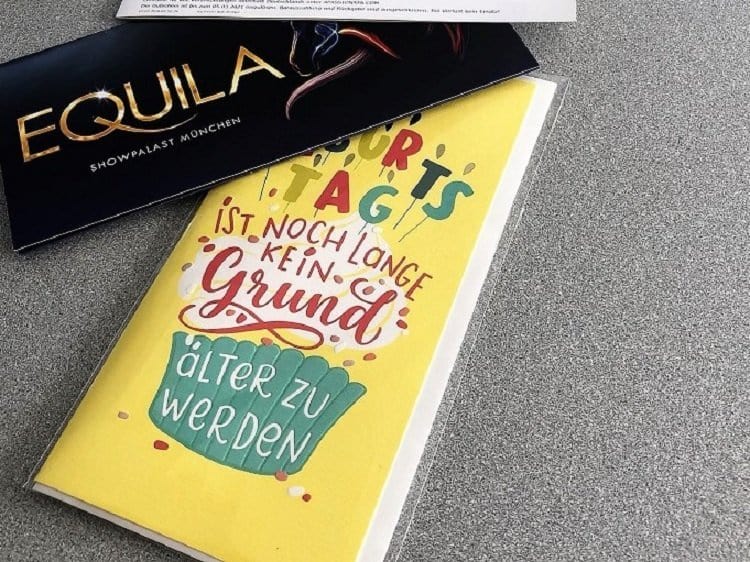 EQUILA
SHOWPALAST MÜNCHEN
URTS
TAG
IST NOCH LANGE
KEIN
Grund
ÄLTER ZU
WERDEN